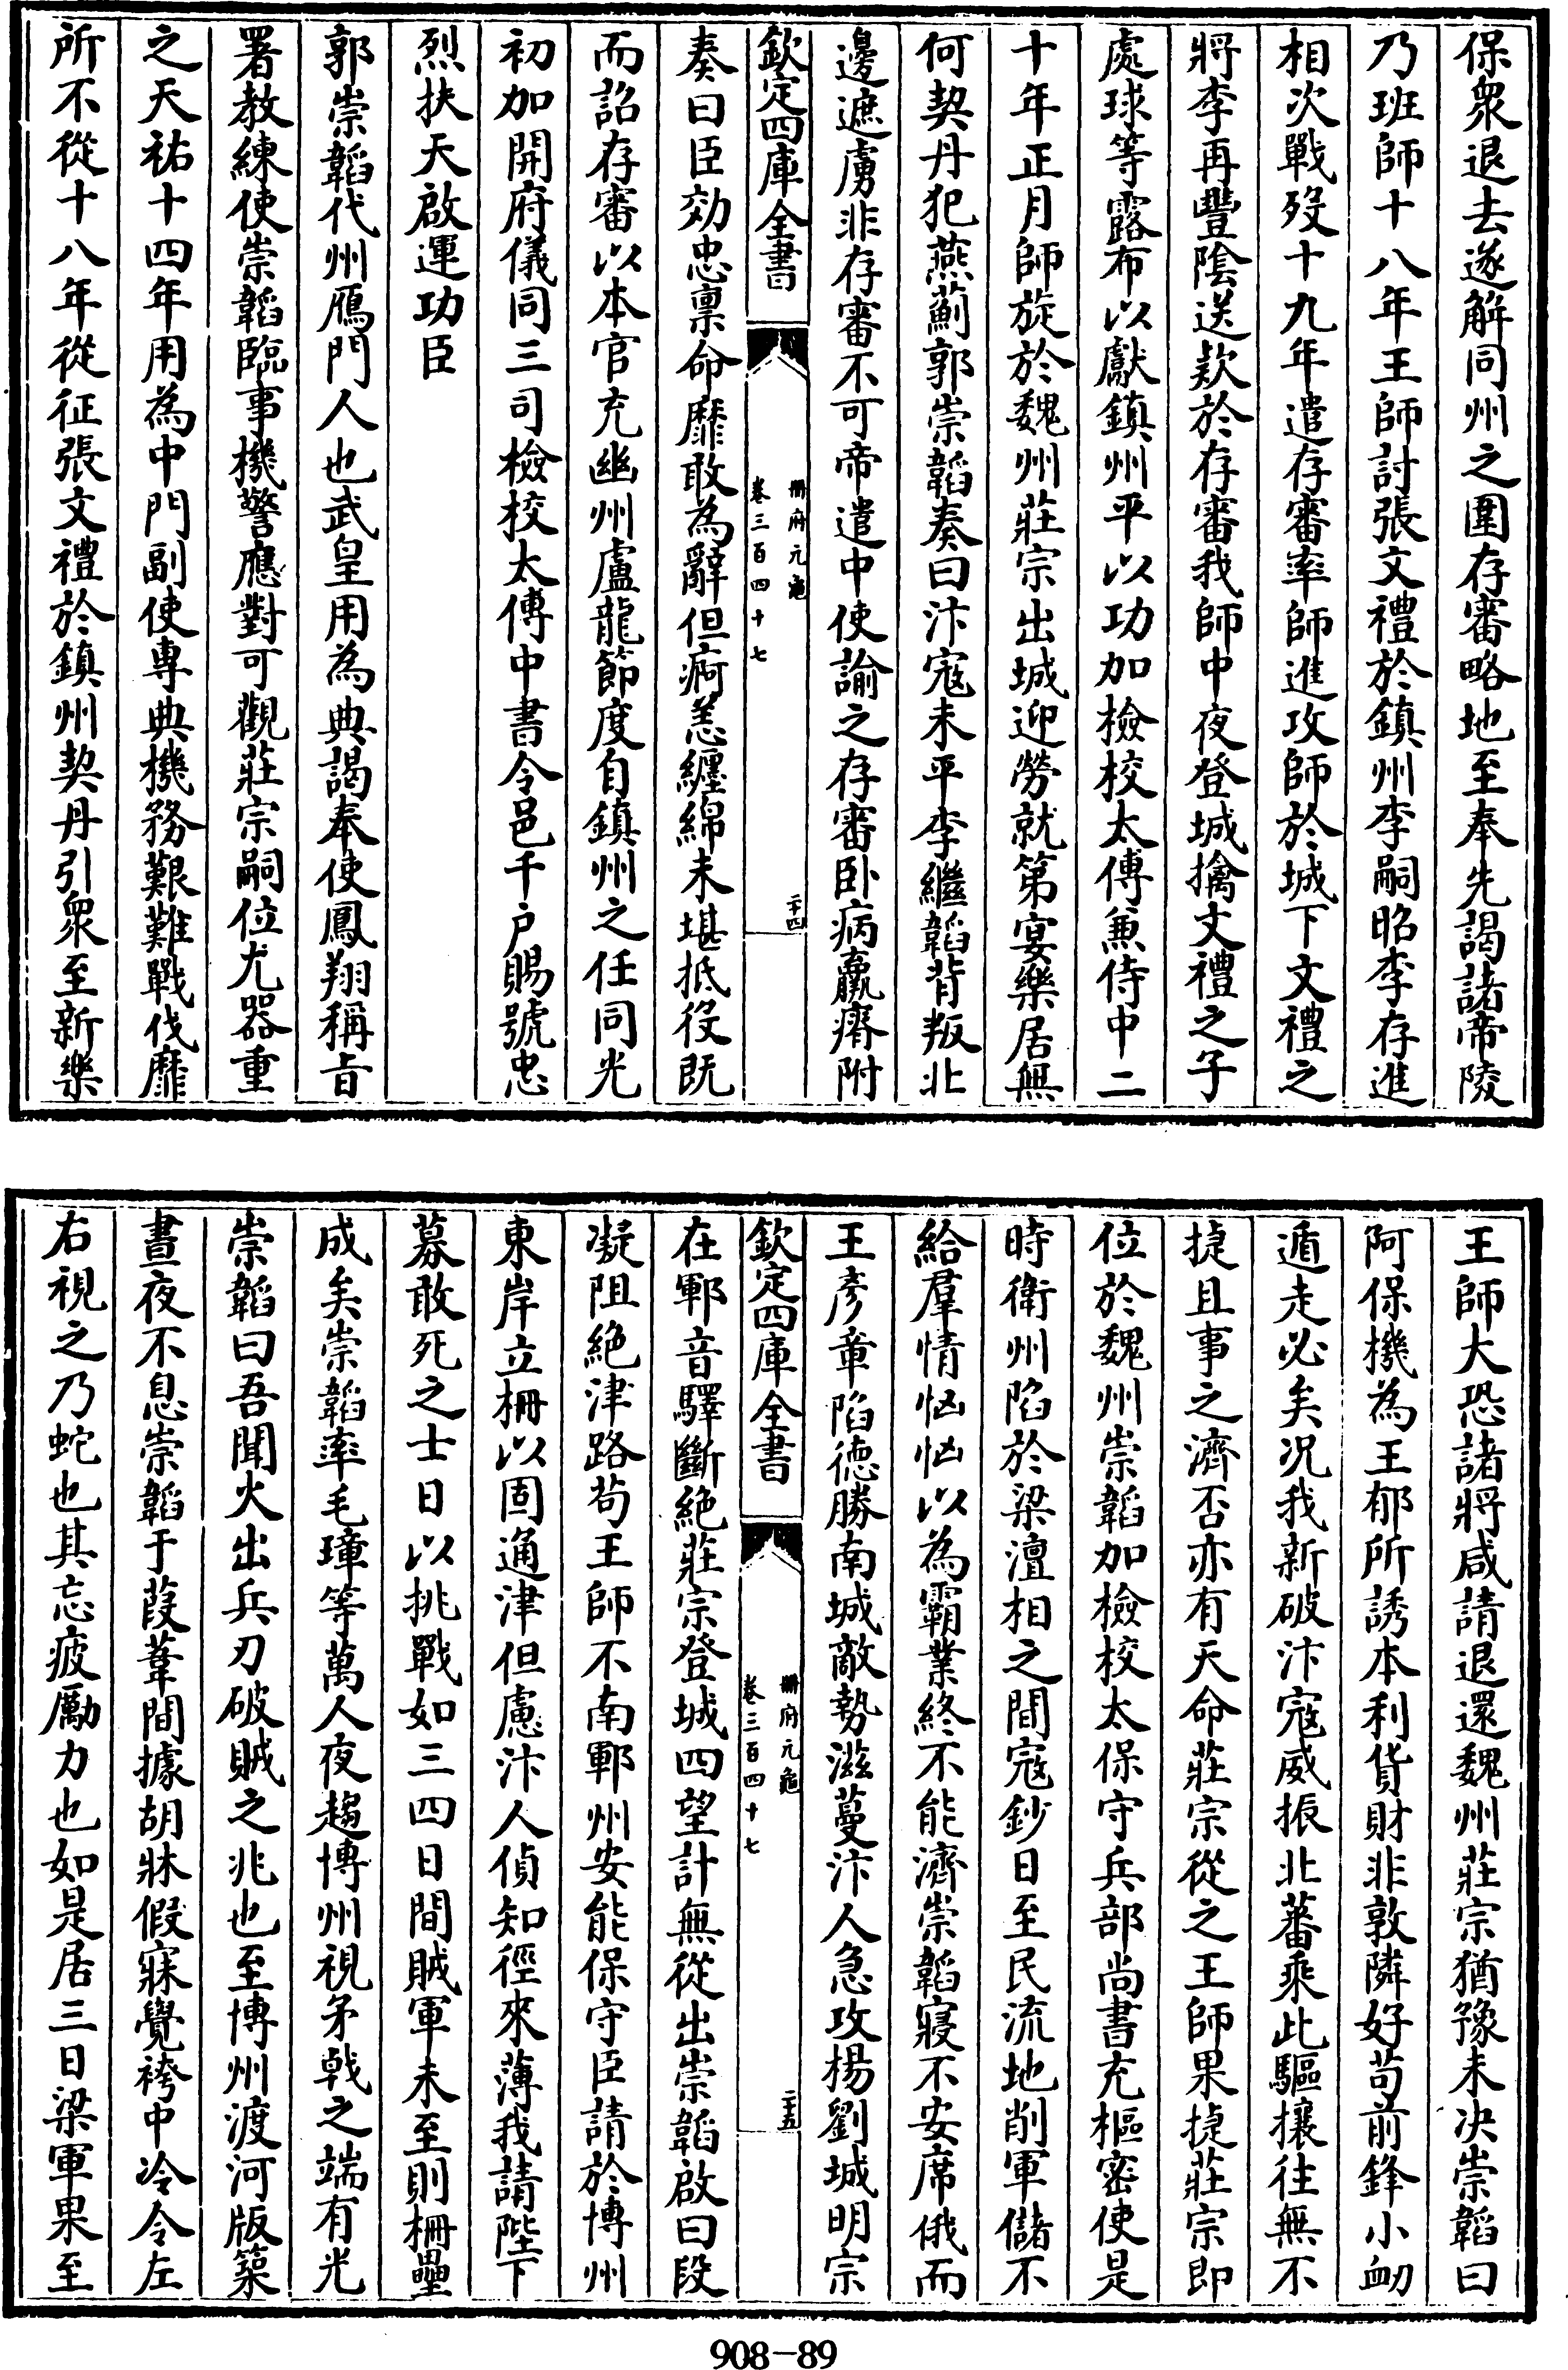 保衆退去遂解同州之圍存審略地至奉先謁諸帝陵
乃班師十八年王師討張文禮於鎮州李嗣昭李存進
相次戰歿十九年遣存審率師進攻師於城下文禮之
將李再豐陰送欵於存審我師中夜登城擒文禮之子
處球等露布以獻鎮州平以功加檢校太傅兼侍中二
十年正月師旋於魏州莊宗出城迎勞就第宴樂居無
何契丹犯燕薊郭崇韜奏曰汴寇未平李繼韜背叛北
邊遮虜非存審不可帝遣中使諭之存審卧病羸瘠附
欽定四庫全書
册府元龜
卷三百四十七
二十四
奏曰臣効忠禀命靡敢為辭但痾恙纏綿未堪抵役既
而詔存審以本官充幽州盧龍節度自鎮州之任同光
初加開府儀同三司檢校太傅中書令邑千户賜號忠
烈扶天啟運功臣
郭崇韜代州鴈門人也武皇用為典謁奉使鳳翔稱旨
署教練使崇韜臨事機警應對可觀莊宗嗣位尤器重
之天祐十四年用為中門副使專典機務艱難戰伐靡
所不從十八年從征張文禮於鎮州契丹引衆至新樂
王師大恐諸將咸請退還魏州莊宗猶豫未决崇韜曰
阿保機為王郁所誘本利貨財非敦隣好苟前鋒小衄
遁走必矣况我新破汴寇威振北蕃乘此驅攘往無不
捷且事之濟否亦有天命莊宗從之王師果捷莊宗即
位於魏州崇韜加檢校太保守兵部尚書充樞密使是
時衛州陷於梁澶相之間寇鈔日至民流地削軍儲不
給羣情恟恟以為霸業終不能濟崇韜寢不安席俄而
王彦章陷德勝南城敵勢滋蔓汴人急攻楊劉城明宗
欽定四庫全書
册府元龜
卷三百四十七
二十五
在鄆音驛斷絶莊宗登城四望計無從出崇韜啟曰段
凝阻絶津路茍王師不南鄆州安能保守臣請於博州
東岸立栅以固通津但慮汴人偵知徑來薄我請陛下
募敢死之士日以挑戰如三四日間賊軍未至則栅壘
成矣崇韜率毛璋等萬人夜趨博州視矛戟之端有光
崇韜曰吾聞火出兵刃破賊之兆也至博州渡河版築
晝夜不息崇韜于葭葦間據胡牀假寐覺袴中冷令左
右視之乃蛇也其忘疲厲力也如是居三日梁軍果至
908-89